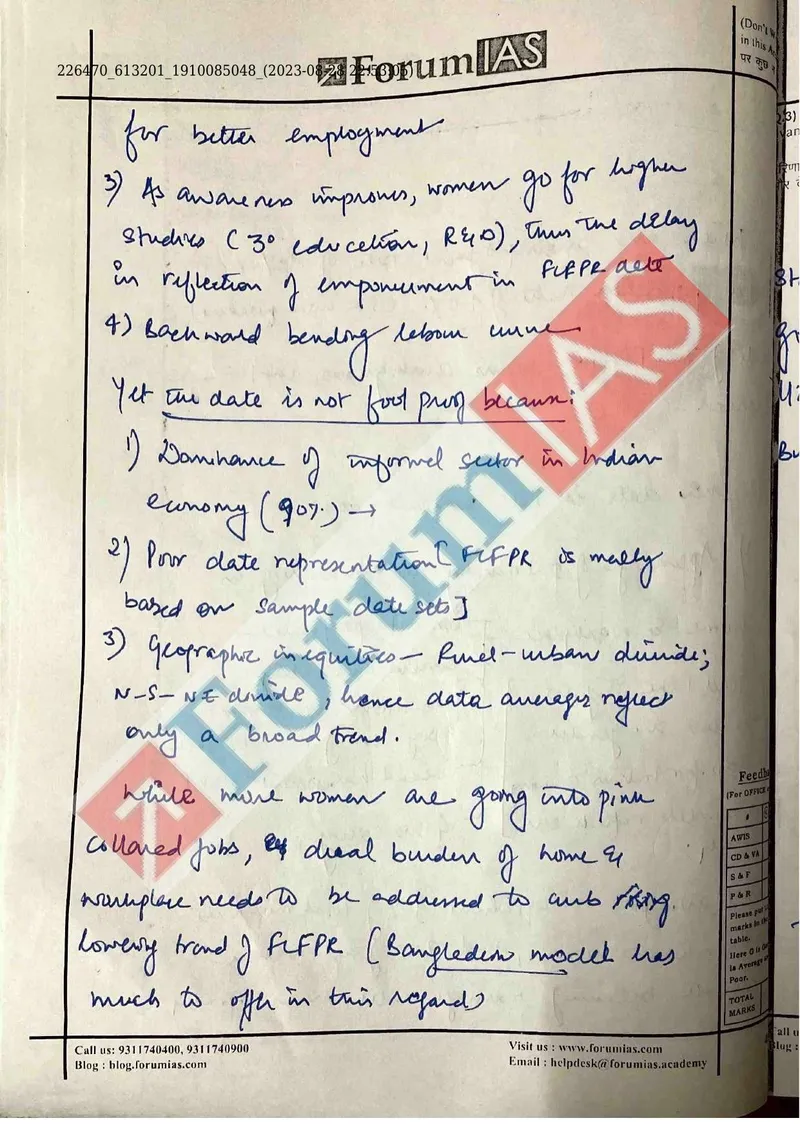 226470_613201_1910085048_(2023-08-28 22:53:05)
ForumIAS
(Don't W
in this A
पर कुछ
for better employment
3) As awareness improves, women go for higher
studies (3° education, R&D), thus the delay
in reflection of empowerment in FLFPR data
4) Backward bending labour curve
Yet the data is not fool proof because:
1) Dominance of informal sector in Indian
economy (90%) →
2) Poor data representation [FLFPR is mostly
based on sample data sets]
3) Geographic inequities – Rural-urban divide;
N-S-NE divide, hence data averages reflect
only a broad trend.
While more women are going into pink
collared jobs, dual burden of home &
workplace needs to be addressed to curb rising
lowering trend of FLFPR (Bangladesh model has
much to offer in this regard)
ForumIAS
Feedba
(For OFFICE
#
AWIS
CD & VA
S & F
P & R
Please put
marks in th
table.
Here 0 is
is Average
Poor.
TOTAL
MARKS
Call us: 9311740400, 9311740900
Blog : blog.forumias.com
Visit us : www.forumias.com
Email : helpdesk@forumias.academy